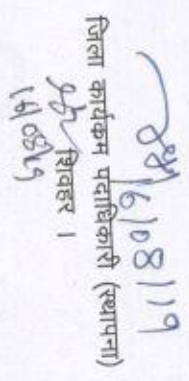 16/08/19
जिला कार्यक्रम पदाधिकारी (स्थापना)
शिवहर ।
16/08/19